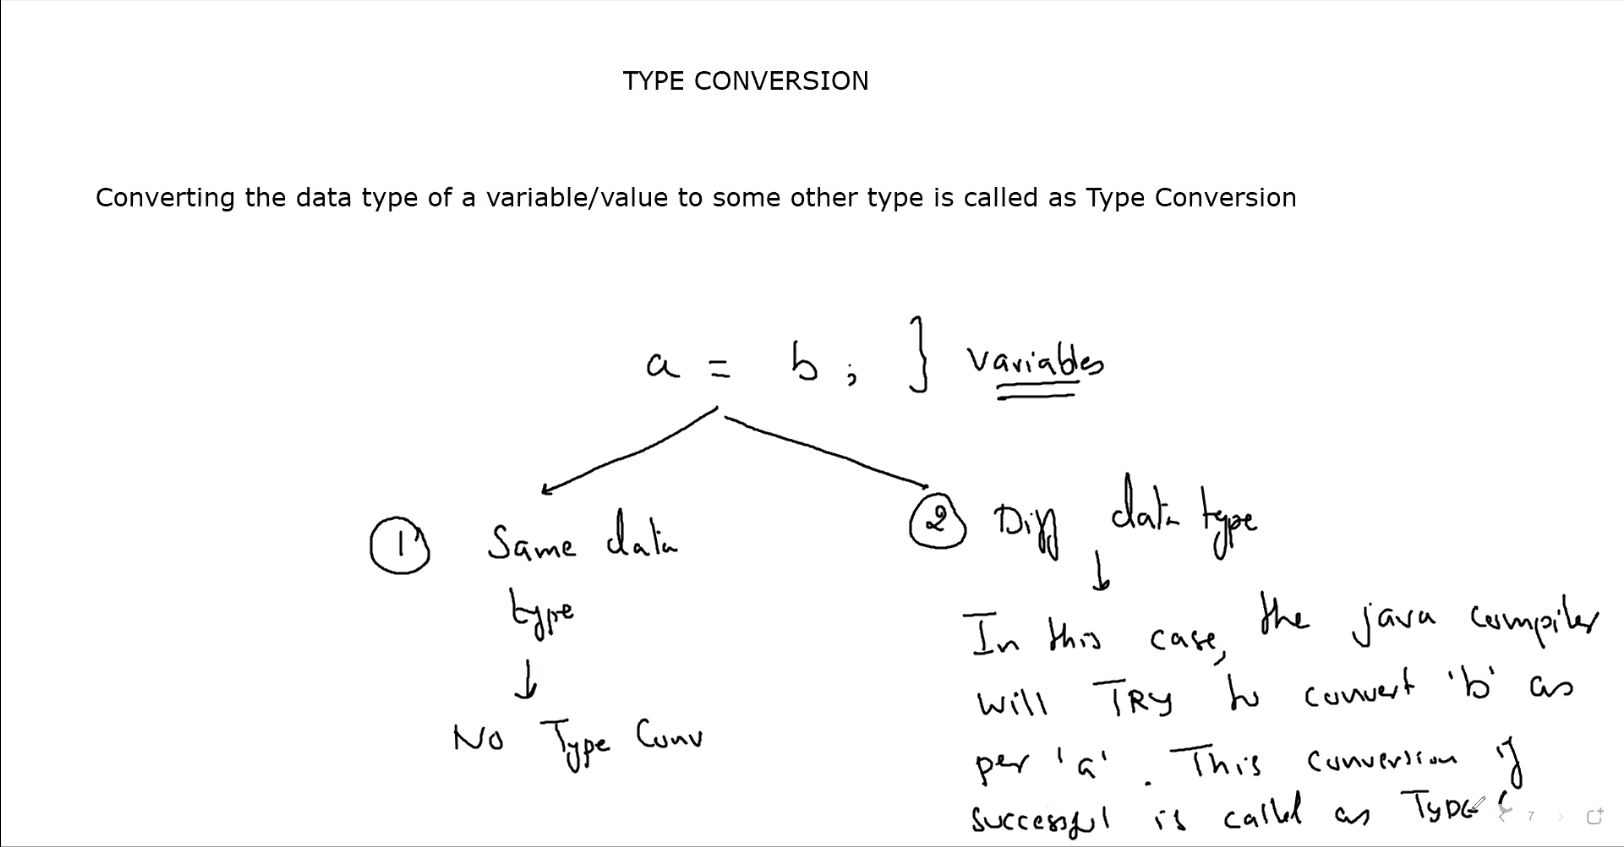 TYPE CONVERSION
Converting the data type of a variable/value to some other type is called as Type Conversion
a = b ; } variables
1 Same data
type
No Type Conv
2 Diff data type
In this case, the java compiler
will TRY to convert 'b' as
per 'a'. This conversion if
successful is called as TYPE
7